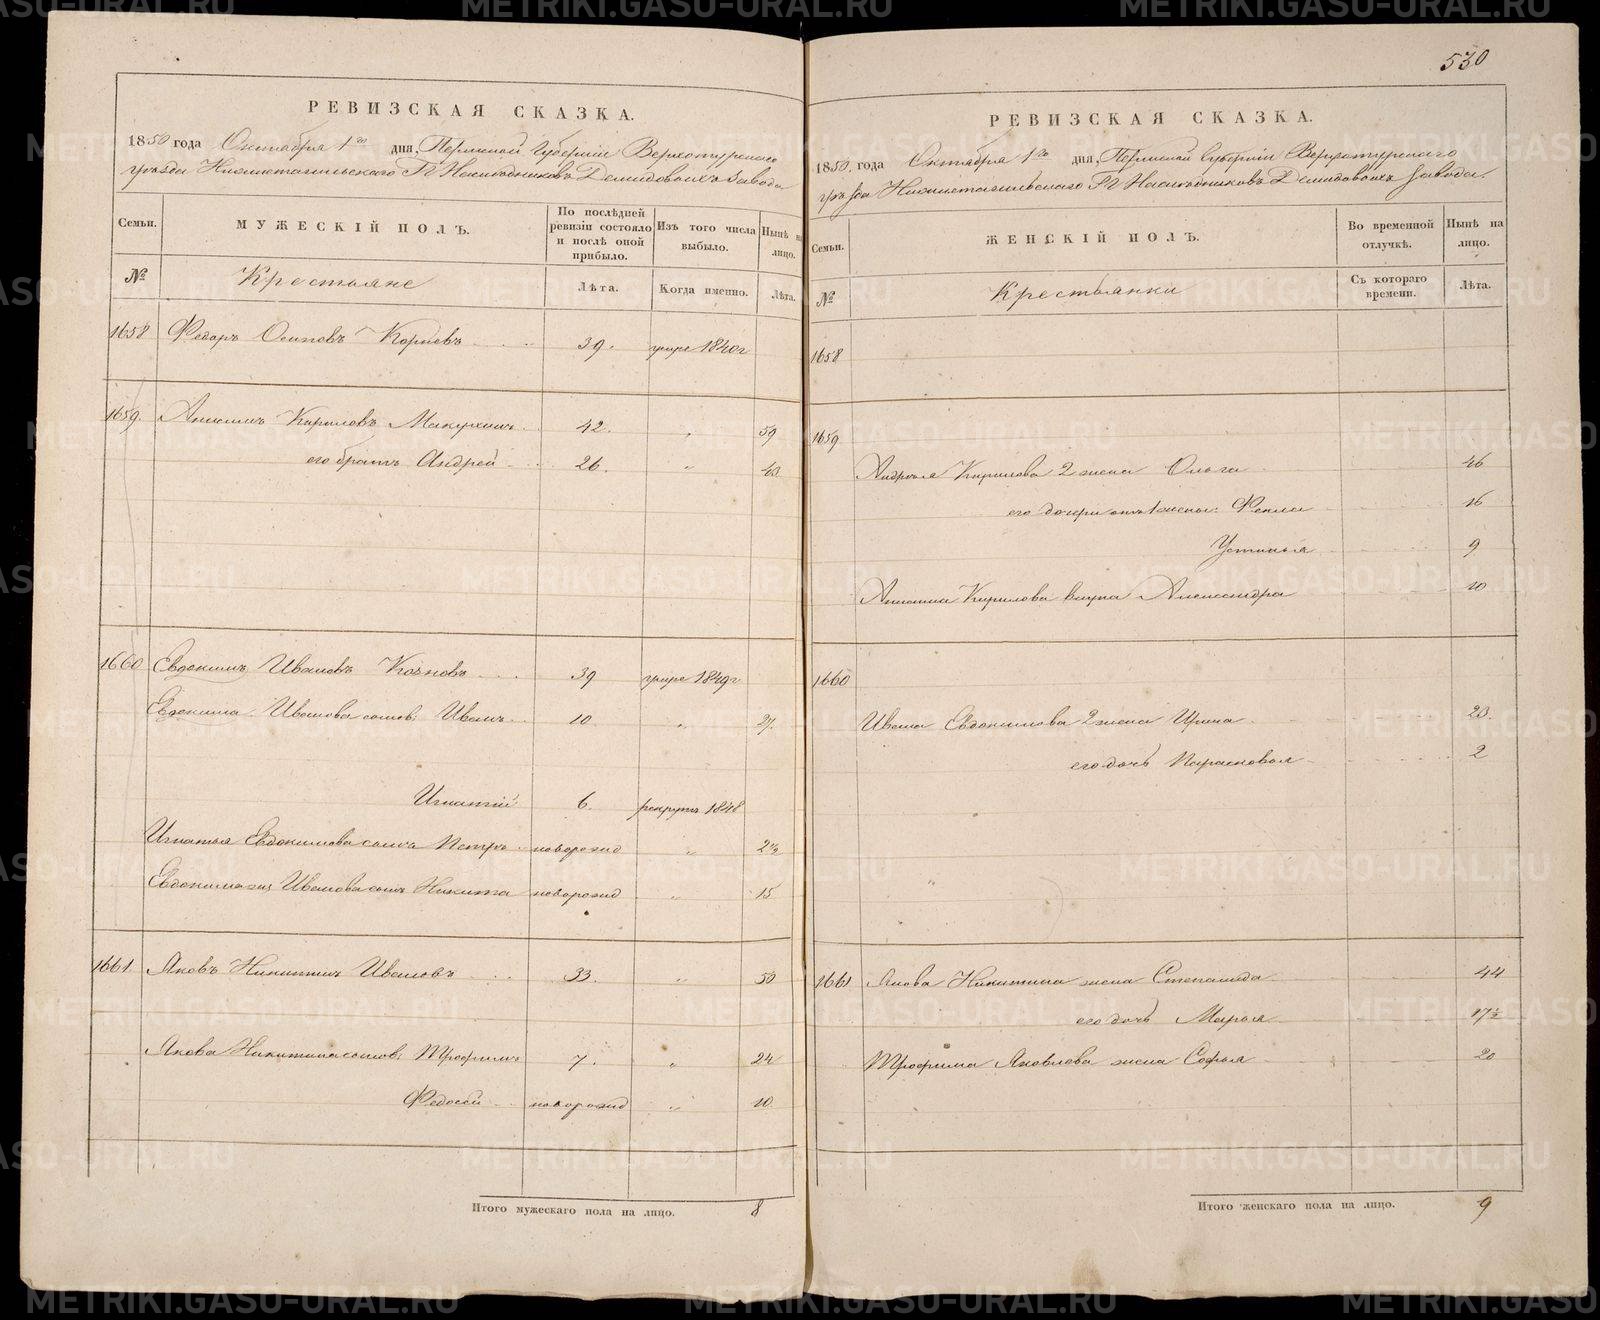 530
РЕВИЗСКАЯ СКАЗКА.
1850 года Октября 1го дня, Пермской Губернии Верхотурского
уѣзда Нижнетагильского Гг Наслѣдниковъ Демидовыхъ завода
Семьи.
МУЖЕСКІЙ ПОЛЪ.
По послѣдней ревизіи состояло и послѣ оной прибыло.
Изъ того числа выбыло.
Нынѣ на лицо.
№
Крестьяне
Лѣта.
Когда именно.
Лѣта.
1658 Федоръ Осиповъ 39. умре 1840г
1659. Анисимъ Кириловъ Макухинъ 42. " 59
его братъ Андрей 26. " 43
1660 Евдокимъ Ивановъ 39 умре 1849г
Евдокима Иванова сынов: Иванъ 10 " 27.
Игнатій 6. рекрутъ 1848
Игнатья Евдокимова сынъ Петръ новорожд " 2½
Евдокима Иванова сынъ Никита новорожд " 15
1661 Яковъ Никитинъ Ивановъ 33. " 50
Якова Никитина сынов: Трофимъ 7. " 24
Федосѣй новорожд " 10.
Итого мужескаго пола на лицо. 8
РЕВИЗСКАЯ СКАЗКА.
1850 года Октября 1го дня, Пермской Губерніи Верхотурского
уѣзда Нижнетагильского Гг Наслѣдниковъ Демидовыхъ завода.
Семьи.
ЖЕНСКІЙ ПОЛЪ.
Во временной отлучкѣ.
Нынѣ на лицо.
№
Крестьянки
Съ котораго времени.
Лѣта.
1658
1659
Андрея Кирилова 2 жена Ольга 46
его дочери отъ 1 жены: Фекла 16
Устинья 9
Анисима Кирилова внука Александра 10
1660
Ивана Евдокимова 2 жена Ирина 23.
его дочь Парасковья 2
1661 Якова Никитина жена Степанида 44
его дочь Марья 17½
Трофима Яковлева жена Софья 20
Итого женскаго пола на лицо. 9
METRIKI.GASO-URAL.RU